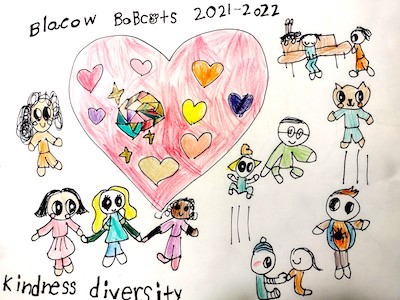 Blacow BoBcats 2021-2022
kindness diversity